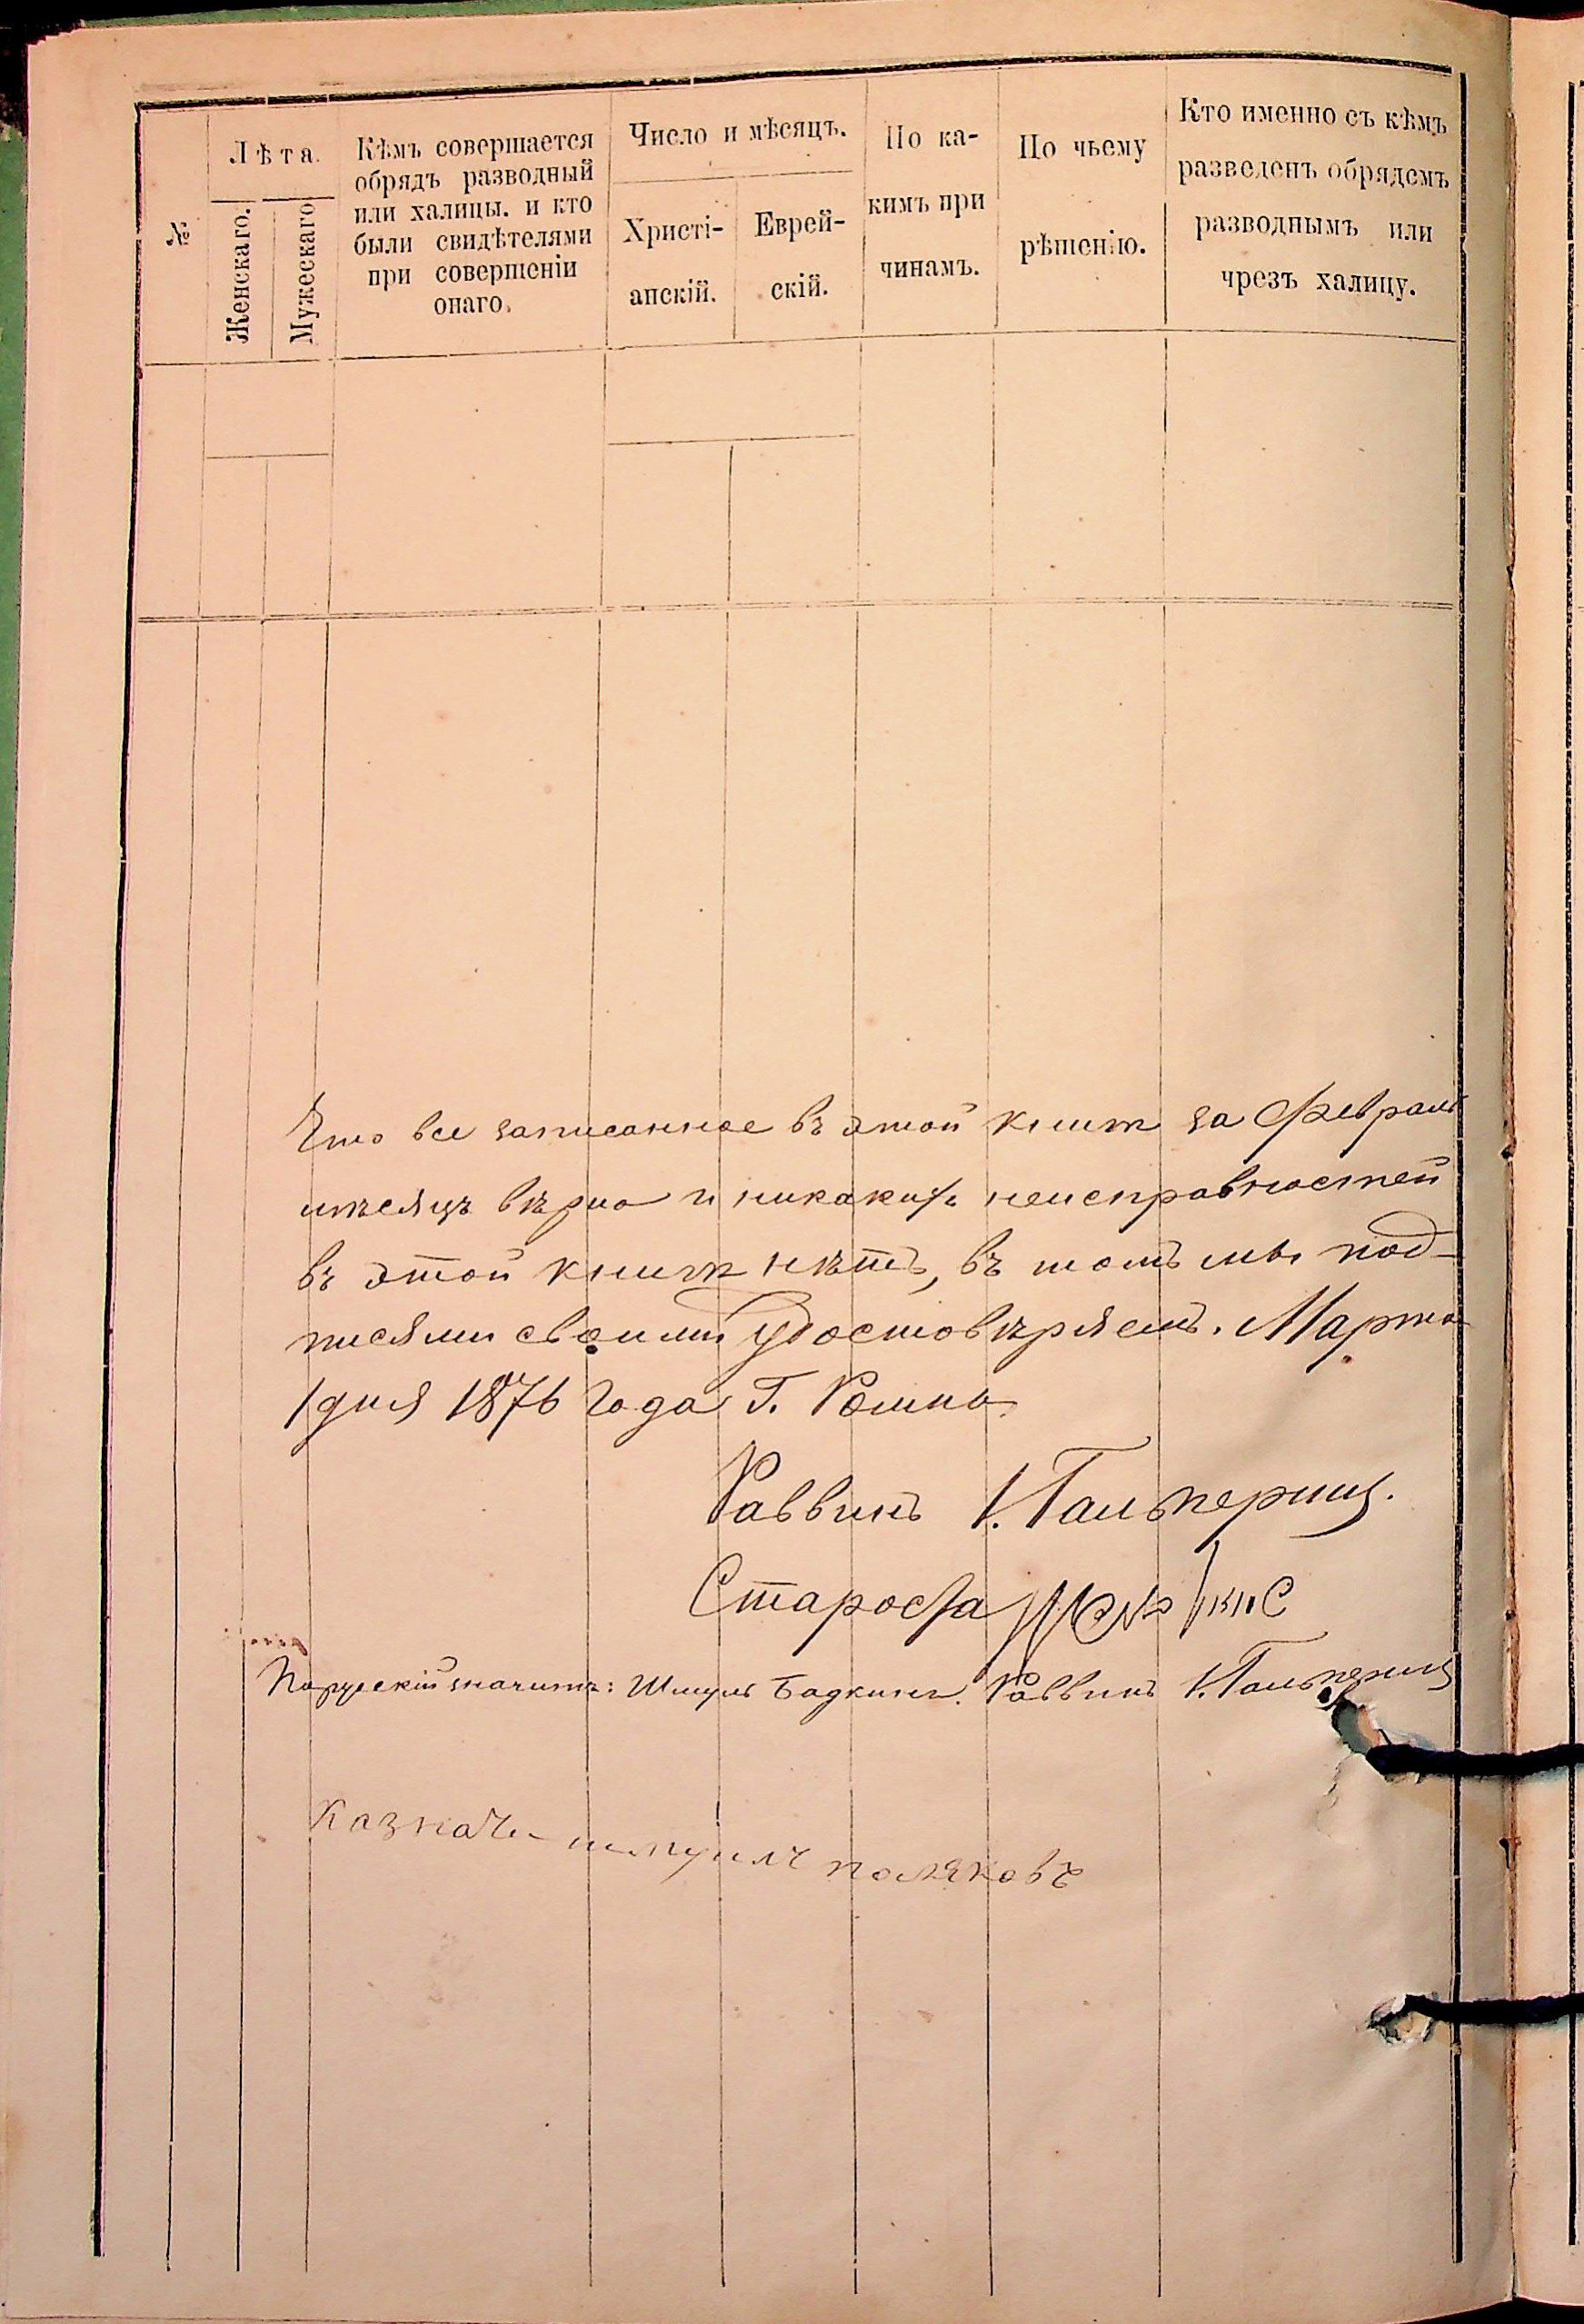 №
Лѣта.
Женскаго.
Мужескаго
Кѣмъ совершается
обрядъ разводный
или халицы. и кто
были свидѣтелями
при совершеніи
онаго.
Число и мѣсяцъ.
Христі-
анскій.
Еврей-
скій.
По ка-
кимъ при
чинамъ.
По чьему
рѣшенію.
Кто именно съ кѣмъ
разведенъ обрядомъ
разводнымъ или
чрезъ халицу.
Что все записанное въ этой книгѣ за Февраль
мѣсяцъ вѣрно и никакихъ неисправностей
въ этой книгѣ нѣтъ, въ томъ мы под-
писями своими удостовѣряемъ. Марта
1 дня 1876 года Г. Ромны
Раввинъ І. Гальпернъ.
Староста
Порусскій значитъ: Шмуль Бадкинъ. Раввинъ І. Гальпернъ
Казначе шмуилъ поляковъ